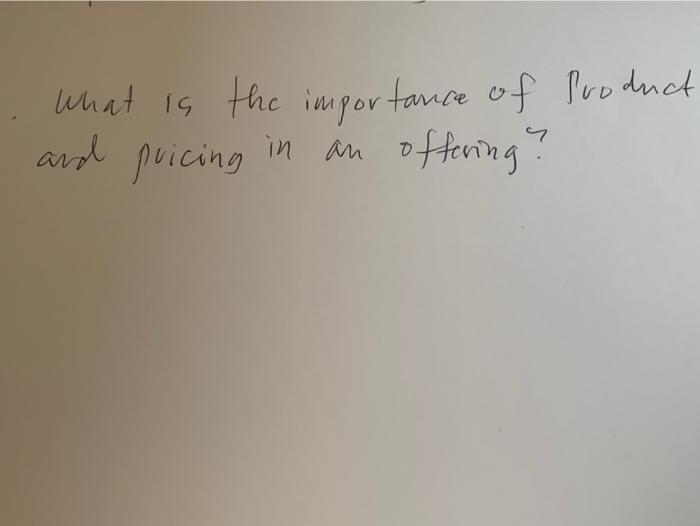 What is the importance of Product
and pricing in an offering?